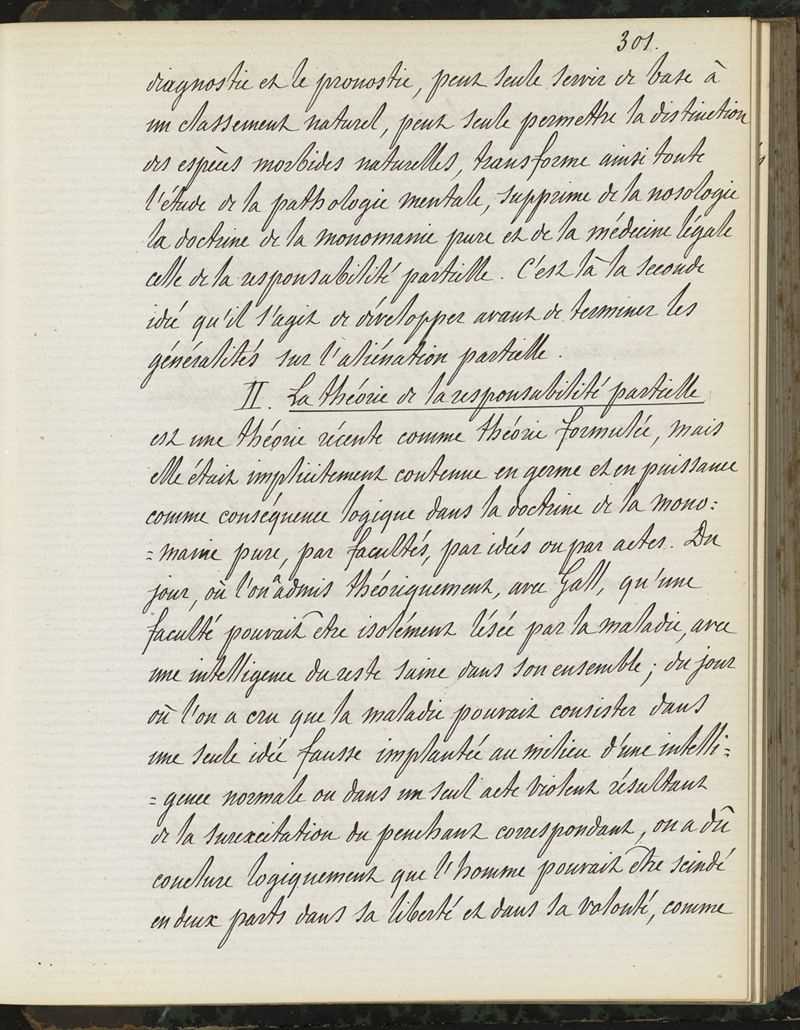 301.
diagnostic et le pronostic, peut seule servir de base à
un classement naturel, peut seule permettre la distinction
des espèces morbides naturelles, transforme ainsi toute
l'étude de la pathologie mentale, supprime de la nosologie
la doctrine de la monomanie pure et de la médecine légale
celle de la responsabilité partielle. C'est là la seconde
idée qu'il s'agit de développer avant de terminer les
généralités sur l'aliénation partielle.
II. La théorie de la responsabilité partielle
est une théorie récente comme théorie formulée, mais
elle était implicitement contenue en germe et en puissance
comme conséquence logique dans la doctrine de la mono=
=manie pure, par facultés, par idées ou par actes. Du
jour, où l'on a admis théoriquement, avec Gall, qu'une
faculté pouvait être isolément lésée par la maladie, avec
une intelligence du reste saine dans son ensemble; du jour
où l'on a cru que la maladie pouvait consister dans
une seule idée fausse implantée au milieu d'une intelli=
=gence normale ou dans un seul acte violent résultant
de la surexcitation du penchant correspondant, on a dû
conclure logiquement que l'homme pouvait être scindé
en deux parts dans sa liberté et dans sa volonté, comme